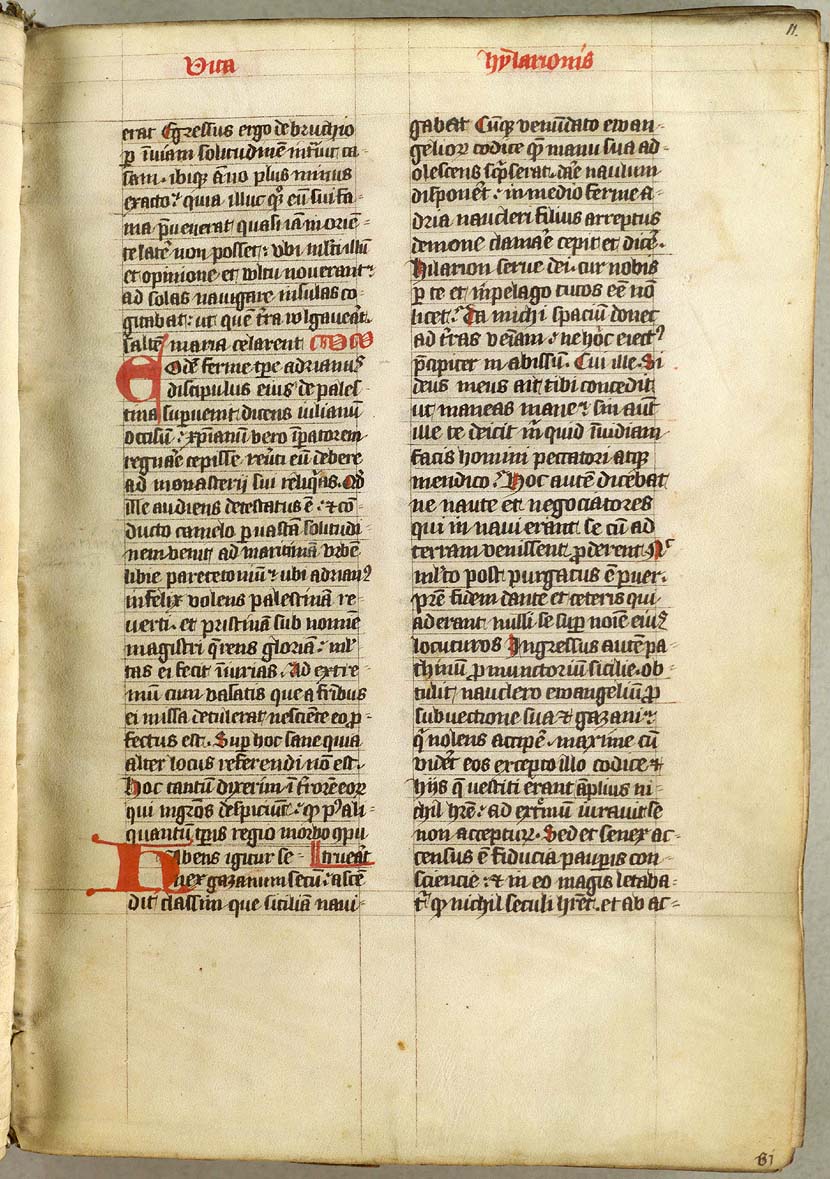 11.
Vita hylarionis
erat Egressus ergo de bruchio
ꝑ īuiam solitudinem intͥuit ca-
sam. ibiqꝫ āno plus minus
exacto quia illuc qꝫ eū sui fa-
ma p̄uenerat quasi iam in orien-
te latēͬ non posset: vbi mlͥti illū
et opinione et vltu nouerant
ad solas nauigare insulas co-
gitabat: ut quē tͬra wlgauerat
saltē maria celarent
Eodē ferme tꝑe adrianus
discipulus eius de pales-
tina superuenit dicens iulianū
occisū xp̄ianū vero īꝑatorem
regnaͬe cepisse reuͬti eū debere
ad monasterii sui reliqͥas. Qd̓
ille audiens detestatus ē et con-
ducto camelo ꝑ uastā solitudi-
nem venit ad maritimā vrbem
libie paretonium ubi adrianꝰ
infelix volens palestinā re-
uerti. et pristinā sub nomine
magistri qͣrens gloriam ml̓-
tas ei fecit iniurias. Ad extre-
mū cum vasatis que a fr̄ibus
ei missa detulerat nesciēte eo ꝓ-
fectus est. Suꝑ hoc sane quia
alter locus referendi non est.
Hoc tantū dixerim ī tͬrorē eoꝝ
qui mgr̄os despiciunt qꝫ pꝰ ali-
quantū tꝑis regio morbo 9pu
truerat
Habens igitur se-
nex gazanum secū ascē-
dit classim que siciliā naui-
gabat Cūqꝫ venūdato ewan-
gelioꝝ codice quē manu sua ad-
olescens scͥpserat. daͬe naulum
disponeͬt in medio ferme a-
dria naucleri filius arreptus
demone clamaͬe cepit et diceͬ.
Hilarion serue dei. cur nobis
ꝑ te et in pelago tutos eē nō
licet. Da michi spacium donec
ad tͬras veniam. ne hic eiectꝰ
p̄cipiter in abissum. Cui ille. Si
deus meus ait tibi concedit
ut maneas mane sin autē
ille te deicit cͬ quid īuidiam
facis homini peccatori atqꝫ
mendico. Hoc autē dicebat
ne naute et negociatores
qui in naui erant se cū ad
terram venissent ꝓderent Nͨ
ml̓to post purgatus ē puer.
pr̄e fidem dante et ceteris qui
aderant nulli se suꝑ noīe eiꝰ
locuturos Ingressus autē pa-
chinū ꝓmunctorium sicilie. ob-
tulit nauclero ewangelium ꝓ
subuectione sua et gazani
qͥ nolens accipeͬ. maxime cū
videͬt eos excepto illo codice et
hiis qͥ vestiti erant āplius ni-
chil hr̄e ad extͬmum iurauit se
non acceptur̄. Sed et senex ac-
census ē fiducia pauꝑis con-
sciencie et in eo magis letaba-
tͬ qꝫ nichil seculi hr̄et. et ab ac-
61